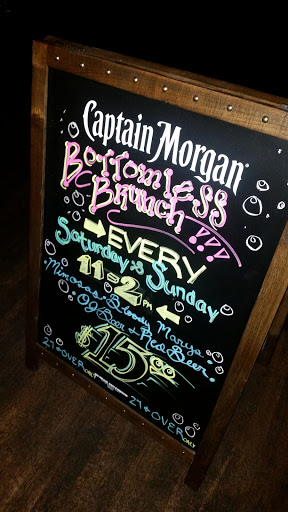 Captain Morgan
Bottomless
Brunch!!!
EVERY
Saturday & Sunday
11 to 2 PM
Mimosas • Bloody Marys
OJ Beer & Red Beer
$15.00
21 & OVER ONLY 21 & OVER ONLY